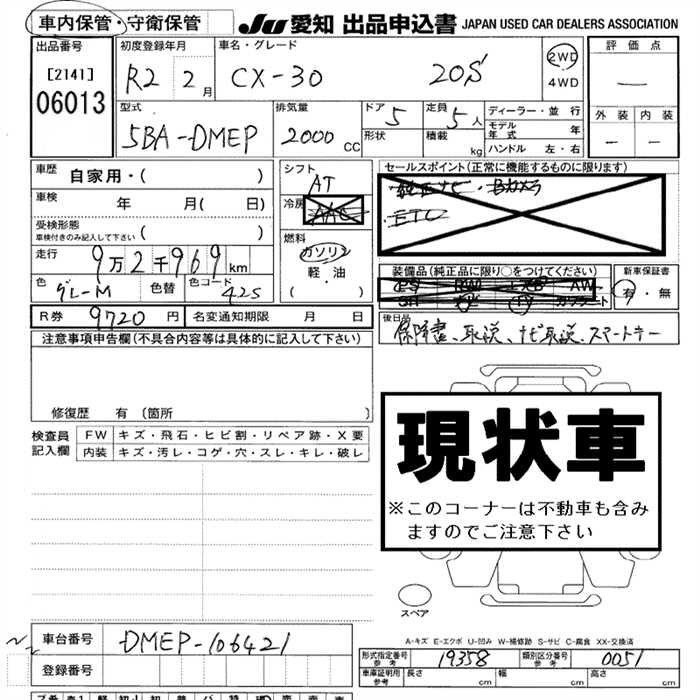 車内保管・守衛保管
JU 愛知 出品申込書 JAPAN USED CAR DEALERS ASSOCIATION
出品番号
[2141]
06013
初度登録年月
R2 2月
車名・グレード
CX-30 20S
2WD
・
4WD
評価点
—
外装 内装
— —
型式
5BA-DMEP
排気量
2000 CC
ドア 5
形状
定員 5人
積載 kg
ディーラー・並行
モデル年式 年
ハンドル 左・右
車歴 自家用・( )
車検 年 月( 日)
受検形態
車検付きのみ記入して下さい ( )
走行 9万2千969km
色 グレーM 色替 色コード 42S
シフト
AT
冷房 AAC
燃料
ガソリン
軽・油
( )
セールスポイント(正常に機能するものに限ります)
純正ナビ・Bカメラ
・ETC
装備品(純正品に限り○をつけてください)
PS PW AW
SR ナビ TV カワシート
新車保証書
有・無
R券 9720円 名変通知期限 月 日
後日品 保証書、取説、ナビ取説、スマートキー
注意事項申告欄(不具合内容等は具体的に記入して下さい)
修復歴 有〔箇所 〕
検査員記入欄
FW キズ・飛石・ヒビ割・リペア跡・X要
内装 キズ・汚レ・コゲ・穴・スレ・キレ・破レ
現状車
※このコーナーは不動車も含み
ますのでご注意下さい
スペア
A-キズ E-エクボ U-凹み W-補修跡 S-サビ C-腐食 XX-交換済
車台番号 DMEP-106421
登録番号
形式指定番号 参考 19358 類別区分番号 参考 0051
車庫証明用 参考 長さ cm 幅 cm 高さ cm